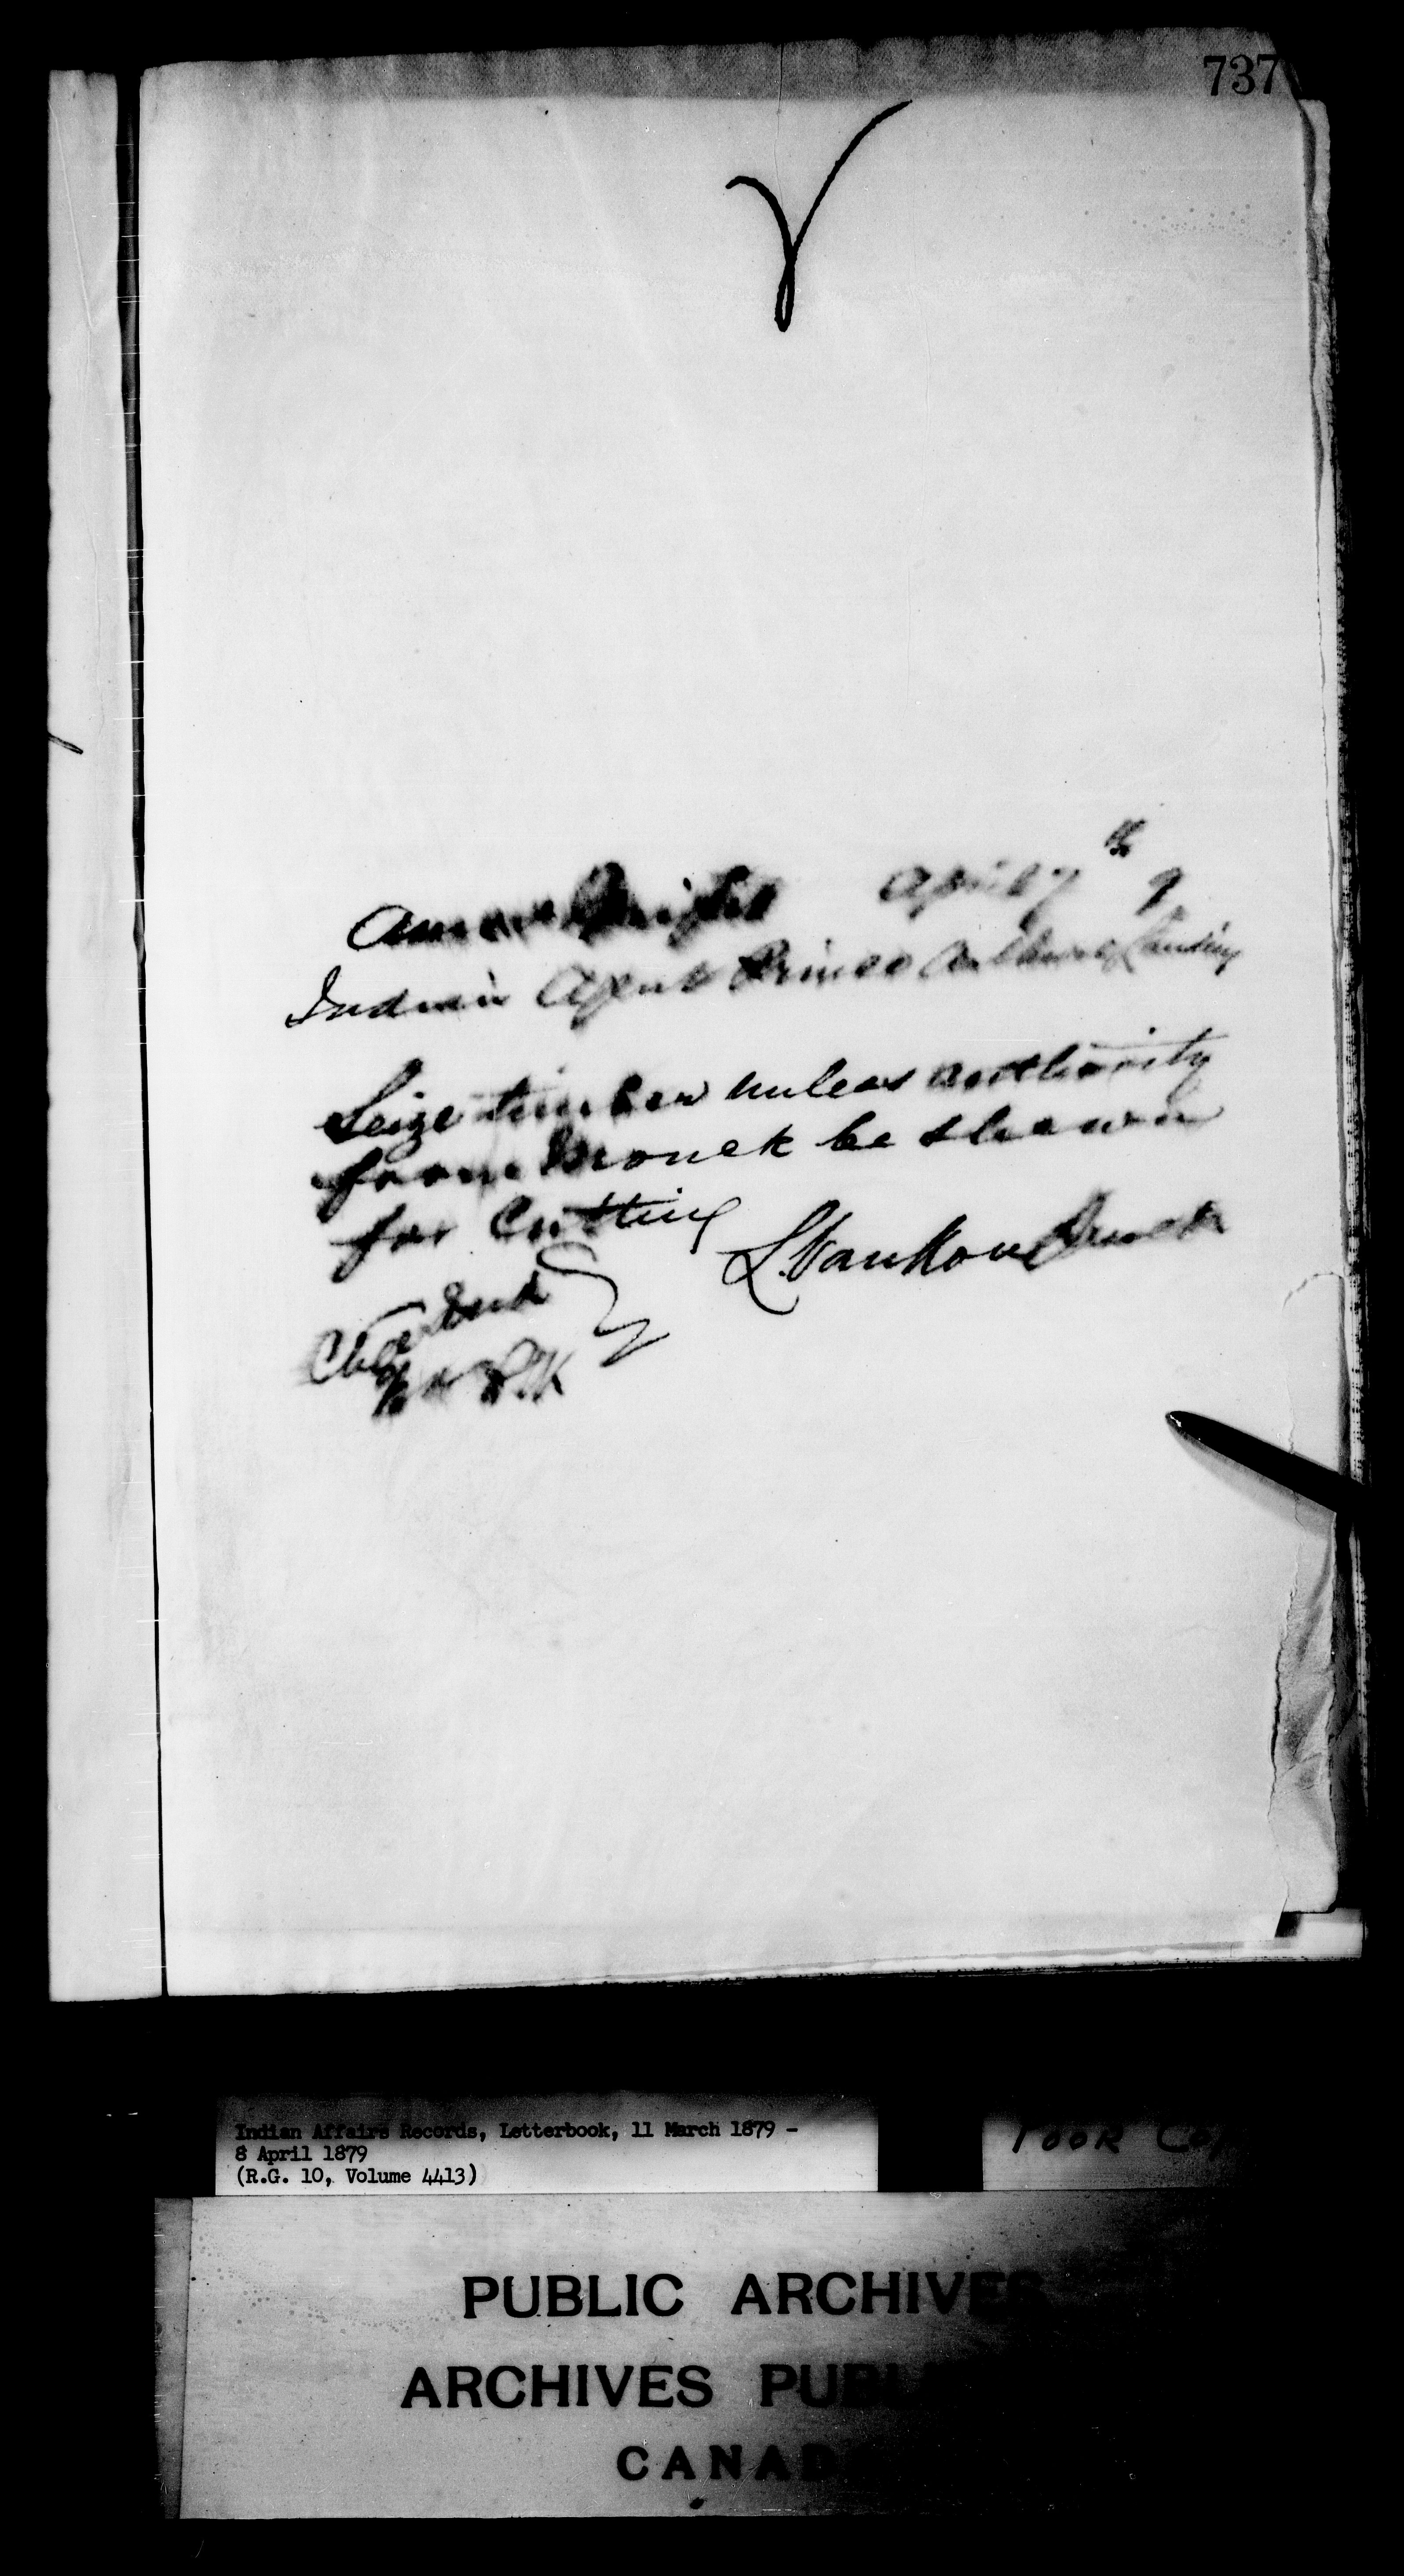 737
Amos Wright April 7th 9
Indian Agent Prince Arthurs Landing
Seize timber unless authority
from Monck be shewn
for Cutting
L. Vankoughnet
Chge Dept
Indian Affairs Records, Letterbook, 11 March 1879 -
8 April 1879
(R.G. 10, Volume 4413)
TOOK COP
PUBLIC ARCHIVES
ARCHIVES PUBL
CANAD